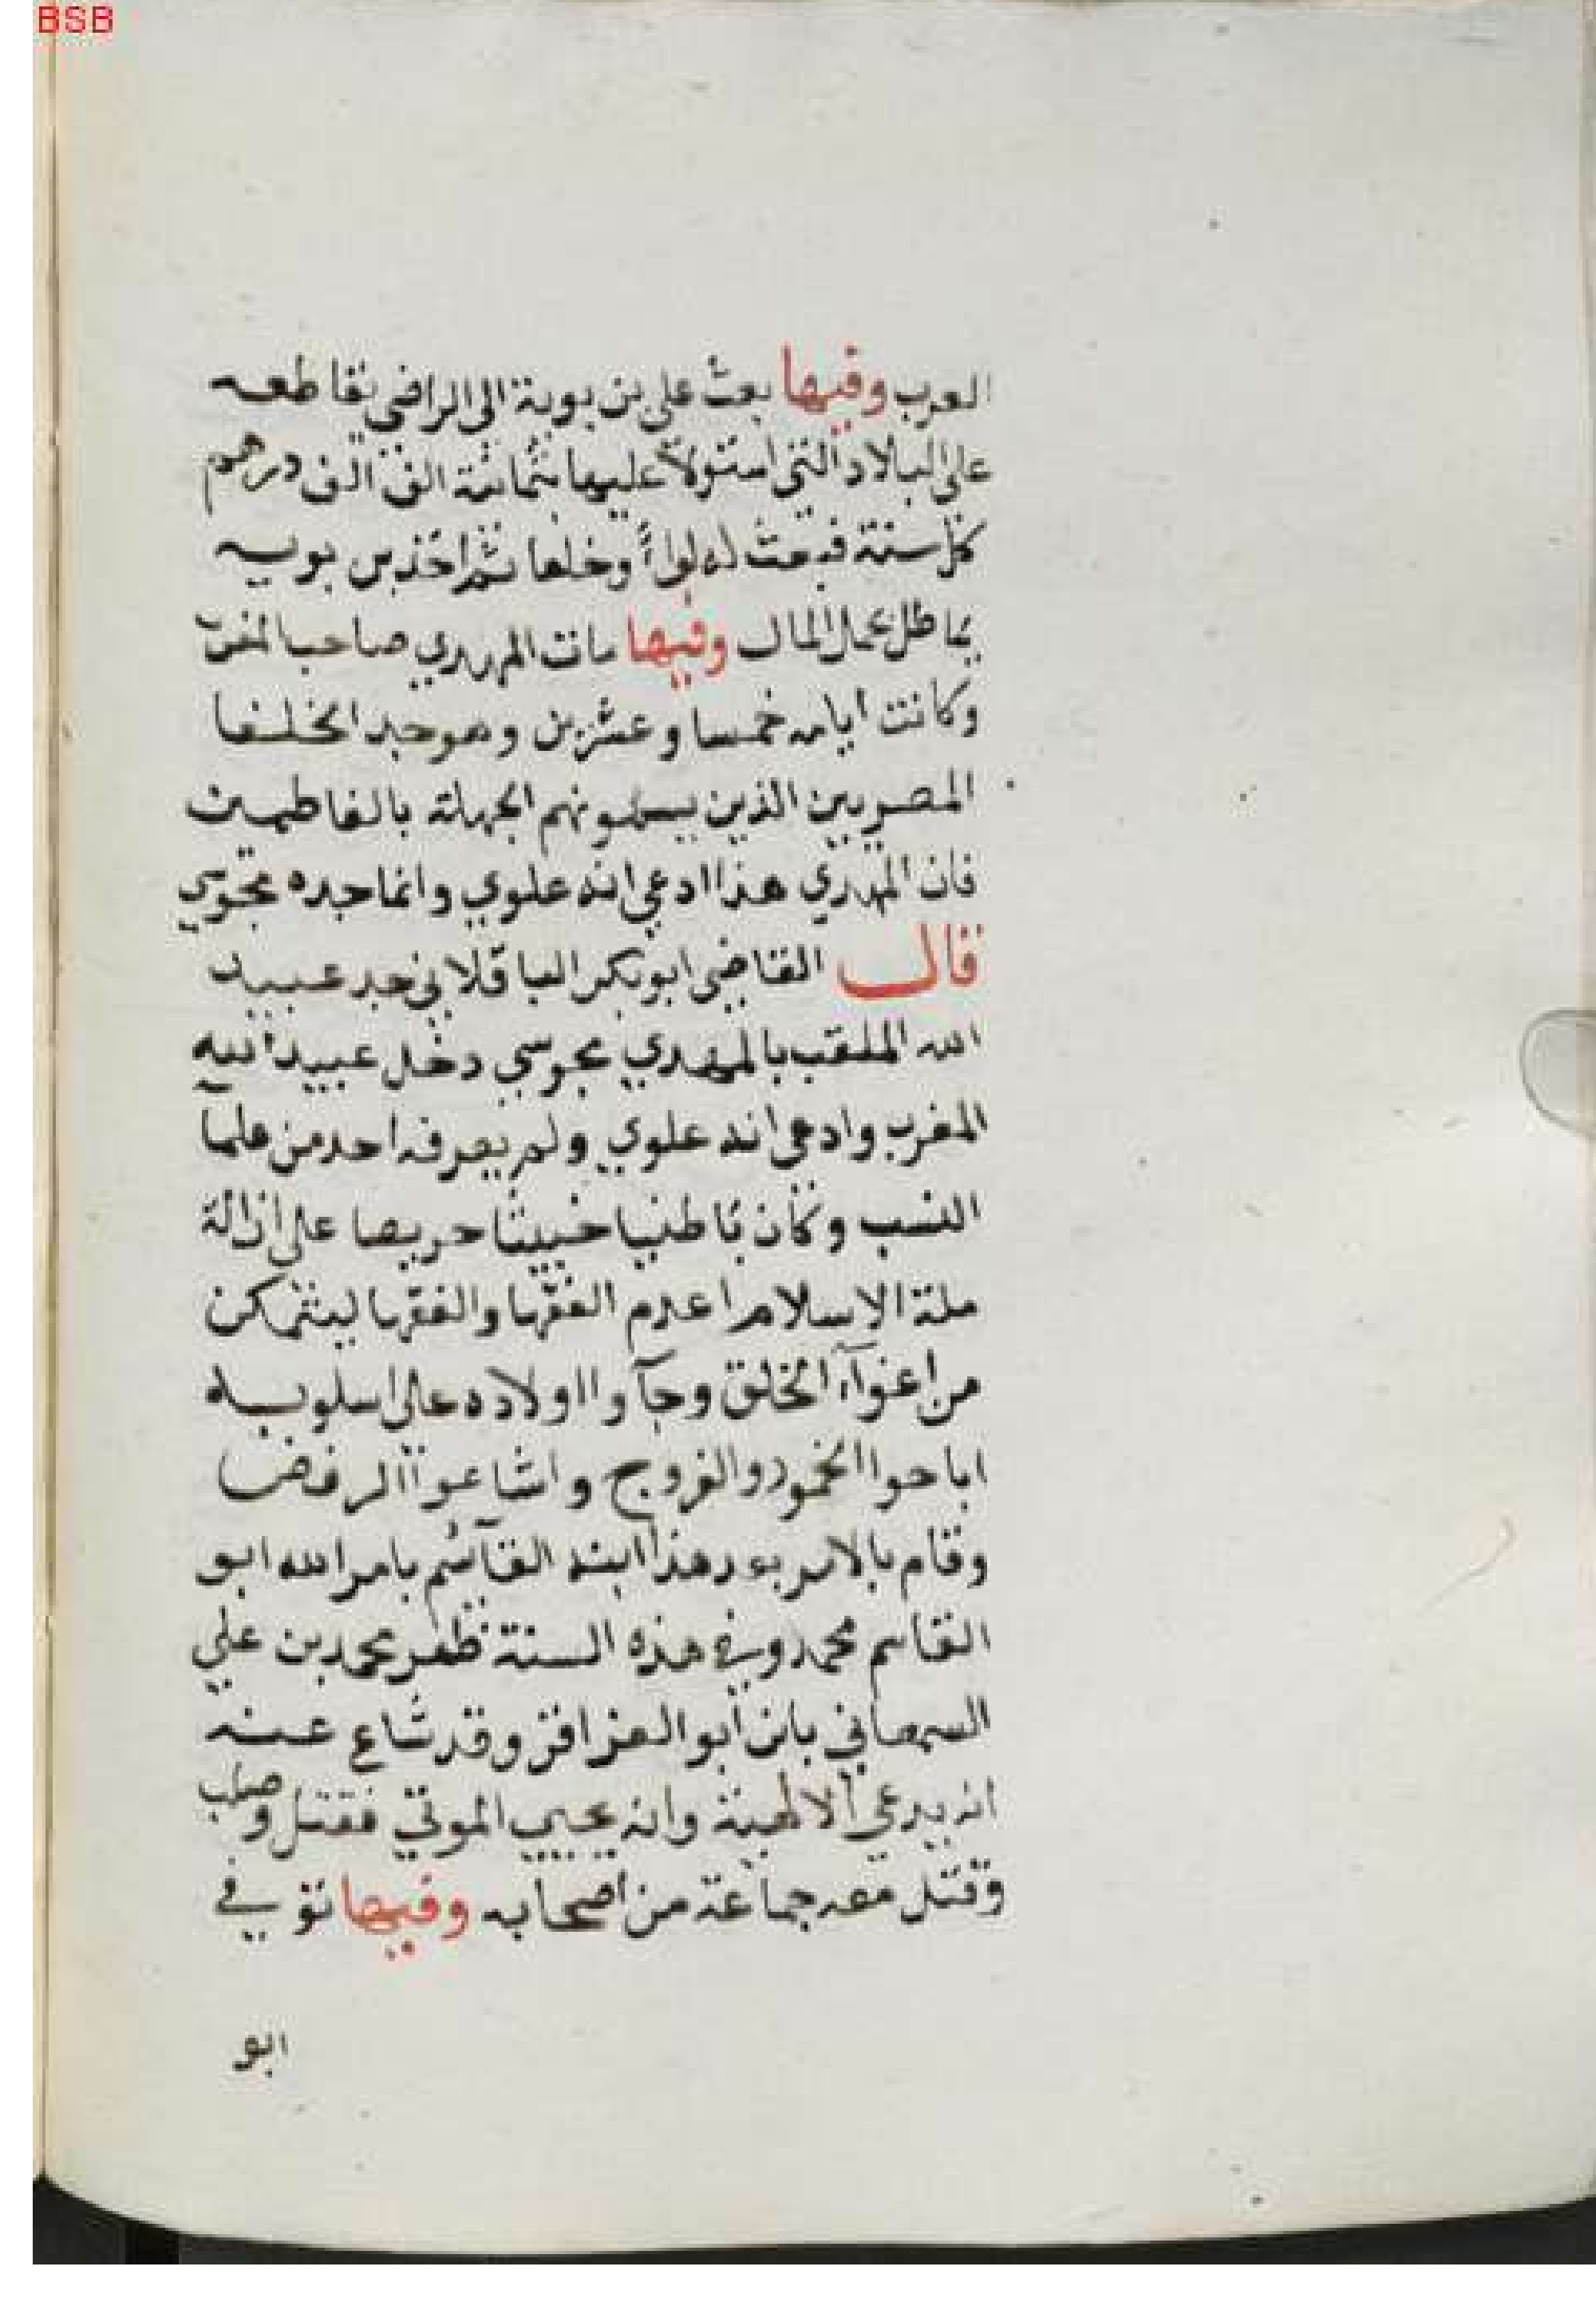 BSB
العرب وفيها بعث علي بن بوية الى الراضي يقاطعه
على البلاد التي استولا عليها بثمانية الف الف درهم
كل سنة فبعث له لواءً وخلعا ثم اخذ بن بويه
يماطل عمال المال وفيها مات المهدي صاحب المغرب
وكانت ايامه خمسا وعشرين وهو جد الخلفا
المصريين الذين يسمونهم الجهلة بالفاطميين
فان المهدي هذا ادعى انه علوي وانما جده مجوسي
قال القاضي ابو بكر الباقلاني جد عبيد
الله الملقب بالمهدي مجوسي دخل عبيد الله
المغرب وادعى انه علوي ولم يعرفه احد من علمآ
النسب وكان باطنيا خبيثا حريصا على ازالة
ملة الاسلام اعدم الفقها والفقها ليتمكن
من اغوآء الخلق وجآوا اولاده على اسلوبه
اباحوا الخمور والفروج واشاعوا الرفض
وقام بالامر بعد هذا ابنه القآئم بامر الله ابو
القاسم محمد وفي هذه السنة ظهر محمد بن علي
السمعاني بابن ابو العزافز وقد شاع عنه
انه يدعي الالهية وانه يحيي الموتى فقتل وصلب
وقتل معه جماعة من اصحابه وفيها توفي
ابو